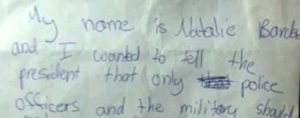 My name is Natalie
and I wanted to tell the
president that only police
officers and the military should